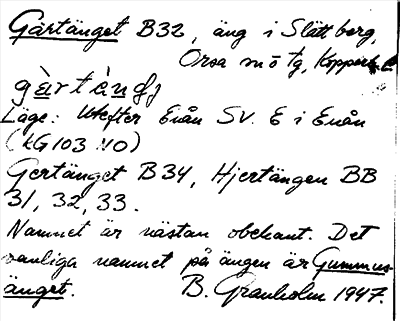 Gärtänget B32, äng i Slättberg,
Orsa
gärtänget
Läge: Utefter Enån SV. E i Enån
(KG103:10)
Gertänget B34, Hjertängen BB
31, 32, 33.
Namnet är nästan obekant. Det
vanliga namnet på ängen är Gummus-
änget. B. Granholm 1947.